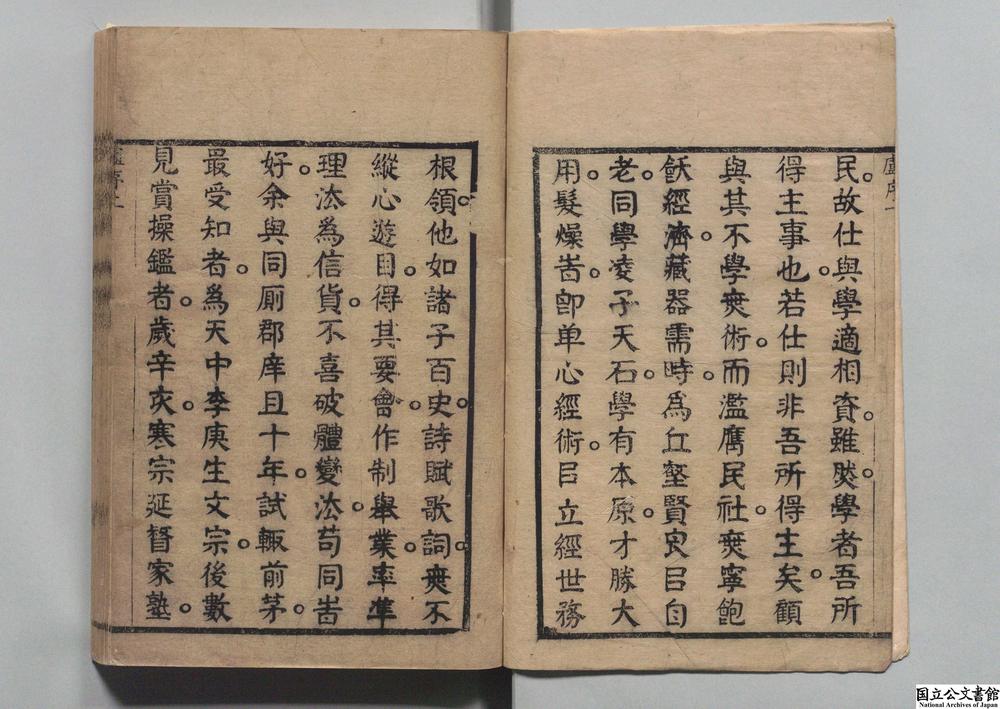 民故仕與學適相資雖然學者吾所
得主事也若仕則非吾所得主矣顧
與其不學無術而濫膺民社無寧飽
飫經濟藏器需時為丘壑賢良㠯自
老同學凌子天石學有本原才勝大
用髮燥旹卽单心經術㠯立經世務
根領他如諸子百史詩賦歌詞無不
縱心遊目得其要會作制舉業率準
理法為信貨不喜破體變法苟同旹
好余與同厠郡庠且十年試輙前茅
最受知者為天中李庚生文宗後數
見賞操鑑者歲辛亥寒宗延督家塾
盧序一
国立公文書館
National Archives of Japan